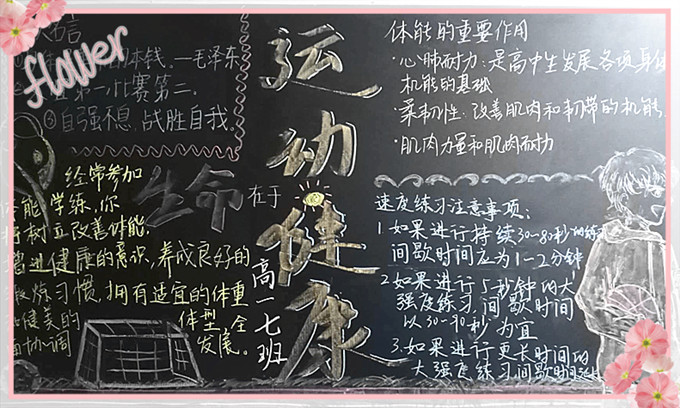 flower
名言
本钱。——毛泽东
第一,比赛第二。
③自强不息,战胜自我。
经常参加
体能学练,你
将树立改善体能、
增进健康的意识,养成良好的
锻炼习惯,拥有适宜的体重
和健美的
体型,全
面协调
发展。
生命
在于
运动健康
高一七班
体能的重要作用
·心肺耐力:是高中生发展各项身体
机能的基础
·柔韧性:改善肌肉和韧带的机能
·肌肉力量和肌肉耐力
速度练习注意事项:
1.如果进行持续30-80秒的练习
间歇时间应为1-2分钟
2.如果进行5秒钟的大
强度练习,间歇时间
以30-90秒为宜
3.如果进行更长时间的
大强度练习间歇时间